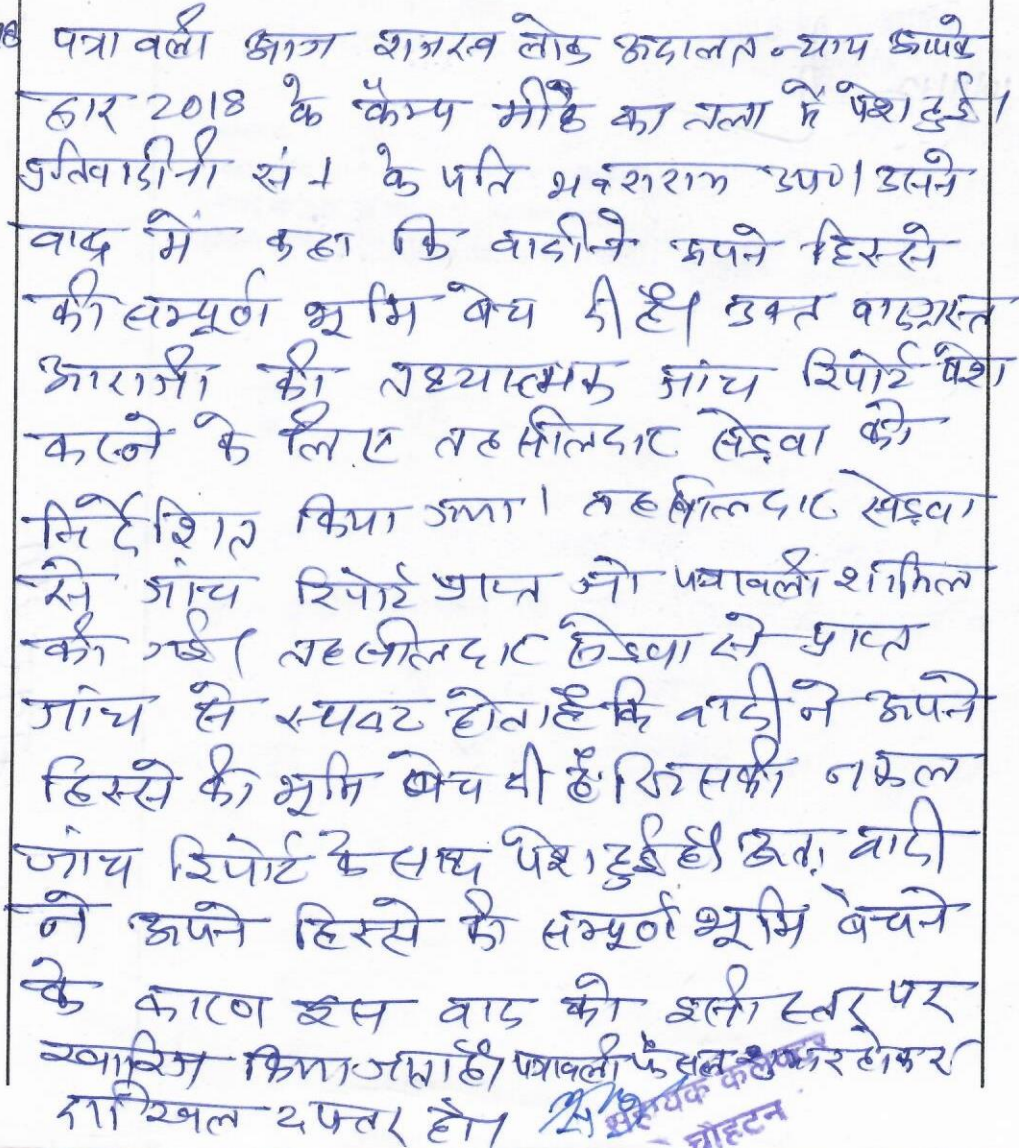 18 पत्रावली आज राजस्व लोक अदालत न्याय आपके
द्वार 2018 के कैम्प मीठे का तला में पेश हुई।
प्रतिवादीनी सं 1 के पति उप०। उसने
वाद में कहा कि वादी ने अपने हिस्से
की सम्पूर्ण भूमि बेच दी है। उक्त वादग्रस्त
आराजी की तथ्यात्मक जांच रिपोर्ट पेश
करने के लिए तहसीलदार सेड़वा को
निर्देशित किया गया। तहसीलदार सेड़वा
से जांच रिपोर्ट प्राप्त जो पत्रावली शामिल
की गई। तहसीलदार सेड़वा से प्राप्त
जांच से स्पष्ट होता है कि वादी ने अपने
हिस्से की भूमि बेच दी है। जिसकी नकल
जांच रिपोर्ट के साथ पेश हुई है। अतः वादी
ने अपने हिस्से की सम्पूर्ण भूमि बेचने
के कारण इस वाद को इसी स्तर पर
खारिज किया जाता है। पत्रावली फैसल शुमार होकर
दाखिल दफ्तर हो।
सहायक कलेक्टर
चौहटन